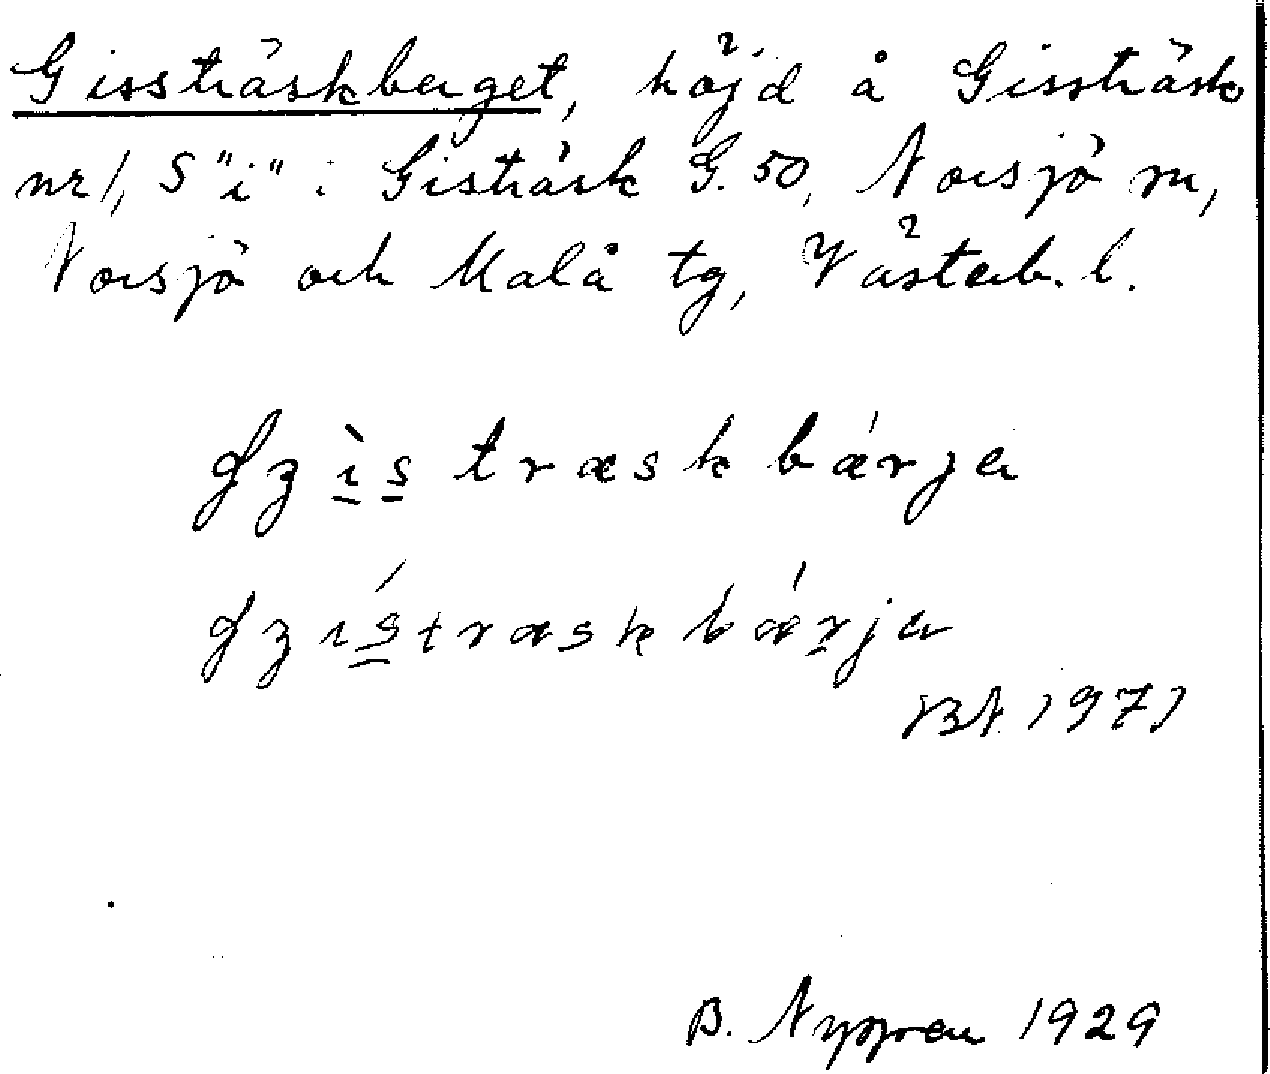 Gissträskberget, höjd å Gissträsk
nr 1, S "i" i Gisträsk G. 50, Norsjö sn,
Norsjö och Malå tg, Västerb. l.
ʤʒı̀s træskbǽrja
ʤʒıśtræskbǽrja
BN. 1971
B. Nyggren 1929